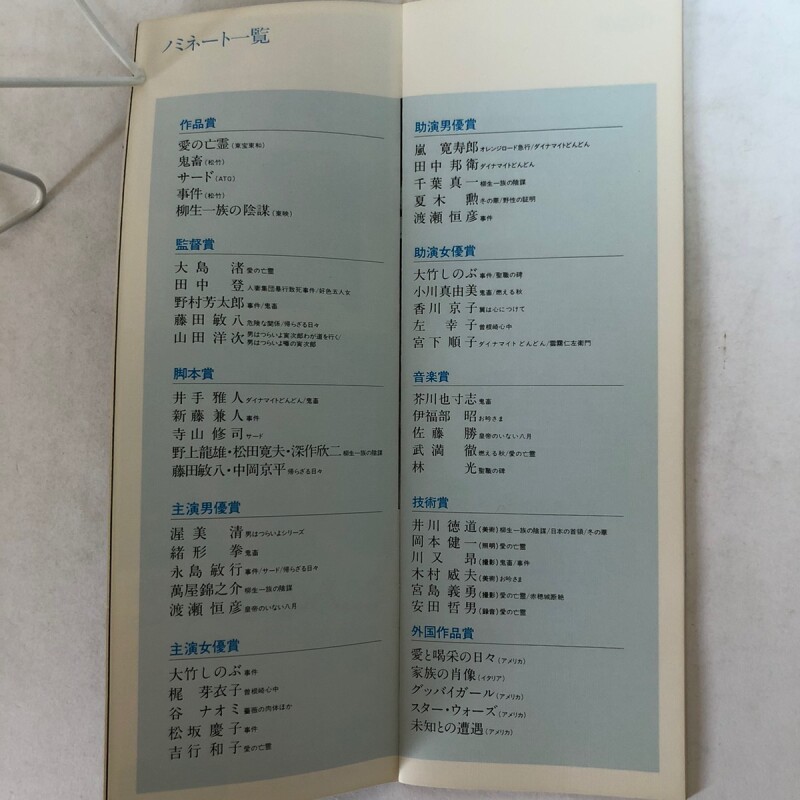 ノミネート一覧
作品賞
愛の亡霊(東宝東和)
鬼畜(松竹)
サード(ATG)
事件(松竹)
柳生一族の陰謀(東映)
監督賞
大島 渚 愛の亡霊
田中 登 人妻集団暴行致死事件/好色五人女
野村芳太郎 事件/鬼畜
藤田敏八 危険な関係/帰らざる日々
山田洋次 男はつらいよ寅次郎わが道を行く/
男はつらいよ噂の寅次郎
脚本賞
井手雅人 ダイナマイトどんどん/鬼畜
新藤兼人 事件
寺山修司 サード
野上龍雄・松田寛夫・深作欣二 柳生一族の陰謀
藤田敏八・中岡京平 帰らざる日々
主演男優賞
渥美 清 男はつらいよシリーズ
緒形 拳 鬼畜
永島敏行 事件/サード/帰らざる日々
萬屋錦之介 柳生一族の陰謀
渡瀬恒彦 皇帝のいない八月
主演女優賞
大竹しのぶ 事件
梶 芽衣子 曽根崎心中
谷 ナオミ 薔薇の肉体ほか
松坂慶子 事件
吉行和子 愛の亡霊
助演男優賞
嵐 寛寿郎 オレンジロード急行/ダイナマイトどんどん
田中邦衛 ダイナマイトどんどん
千葉真一 柳生一族の陰謀
夏木 勲 冬の華/野性の証明
渡瀬恒彦 事件
助演女優賞
大竹しのぶ 事件/聖職の碑
小川真由美 鬼畜/燃える秋
香川京子 翼は心につけて
左 幸子 曽根崎心中
宮下順子 ダイナマイトどんどん/雲霧仁左衛門
音楽賞
芥川也寸志 鬼畜
伊福部 昭 お吟さま
佐藤 勝 皇帝のいない八月
武満 徹 燃える秋/愛の亡霊
林 光 聖職の碑
技術賞
井川徳道(美術)柳生一族の陰謀/日本の首領/冬の華
岡本健一(照明)愛の亡霊
川又 昻(撮影)鬼畜/事件
木村威夫(美術)お吟さま
宮島義勇(撮影)愛の亡霊/赤穂城断絶
安田哲男(録音)愛の亡霊
外国作品賞
愛と喝采の日々(アメリカ)
家族の肖像(イタリア)
グッバイガール(アメリカ)
スター・ウォーズ(アメリカ)
未知との遭遇(アメリカ)